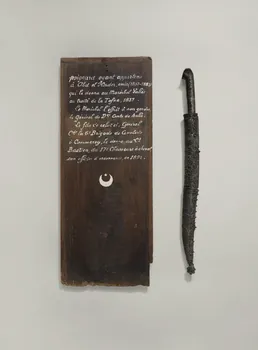 Poignard ayant appartenu
à Abd el Kader, émir,
qui le donna au Maréchal Valée
au traité de la Tafna, 1837
Le Maréchal l'offrit à son gendre,
le Général de Don Comte de Salles
Le fils de celui-ci, Général
Ct la 6e Brigade de Cavalerie
à Commercy, le donna au Ct
Bastien, du 17e Chasseurs à cheval
son officier d'ordonnance, en 1891.